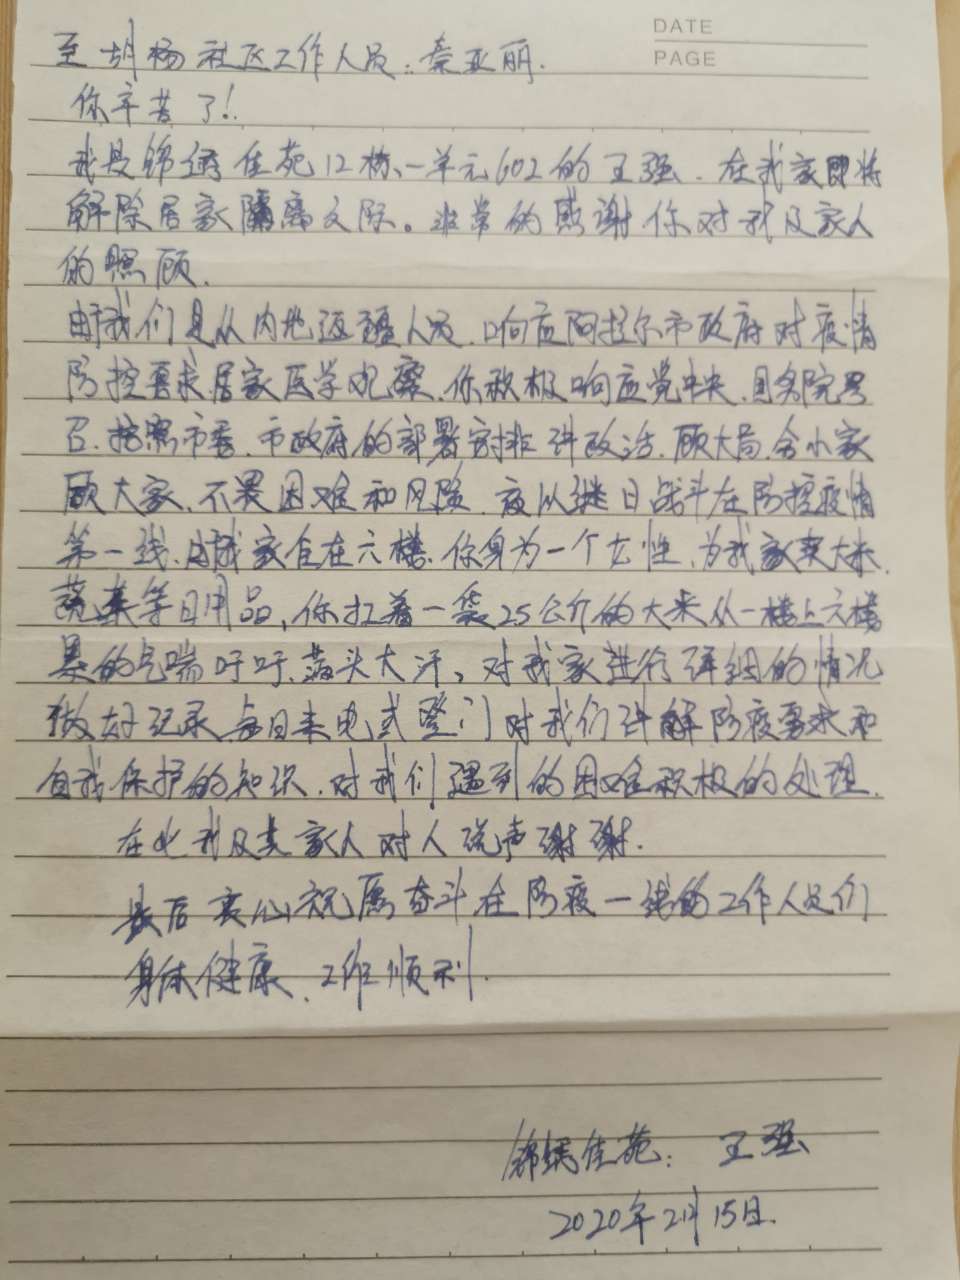 DATE
PAGE
至胡杨社区工作人员:秦亚丽.
你辛苦了!
我是锦绣佳苑12栋、一单元602的王强.在我家即将
解除居家隔离之际。非常的感谢你对我及家人
的照顾.
由于我们是从内地返疆人员.响应阿拉尔市政府对疫情
防控要求居家医学观察.你积极响应党中央.国务院号
召.按照市委.市政府的部署安排讲政治.顾大局.舍小家
顾大家.不畏困难和风险.夜以继日战斗在防控疫情
第一线.由于我家住在六楼.你身为一个女性.为我家买大米.
蔬菜等日用品,你扛着一袋25公斤的大米从一楼上六楼
累的气喘吁吁.满头大汗,对我家进行详细的情况
做好记录.每日来电或登门对我们讲解防疫要求和
自我保护的知识.对我们遇到的困难积极的处理.
在此我及其家人对人说声谢谢.
最后衷心祝愿奋斗在防疫一线的工作人员们
身体健康、工作顺利.
锦绣佳苑:王强
2020年2月15日.